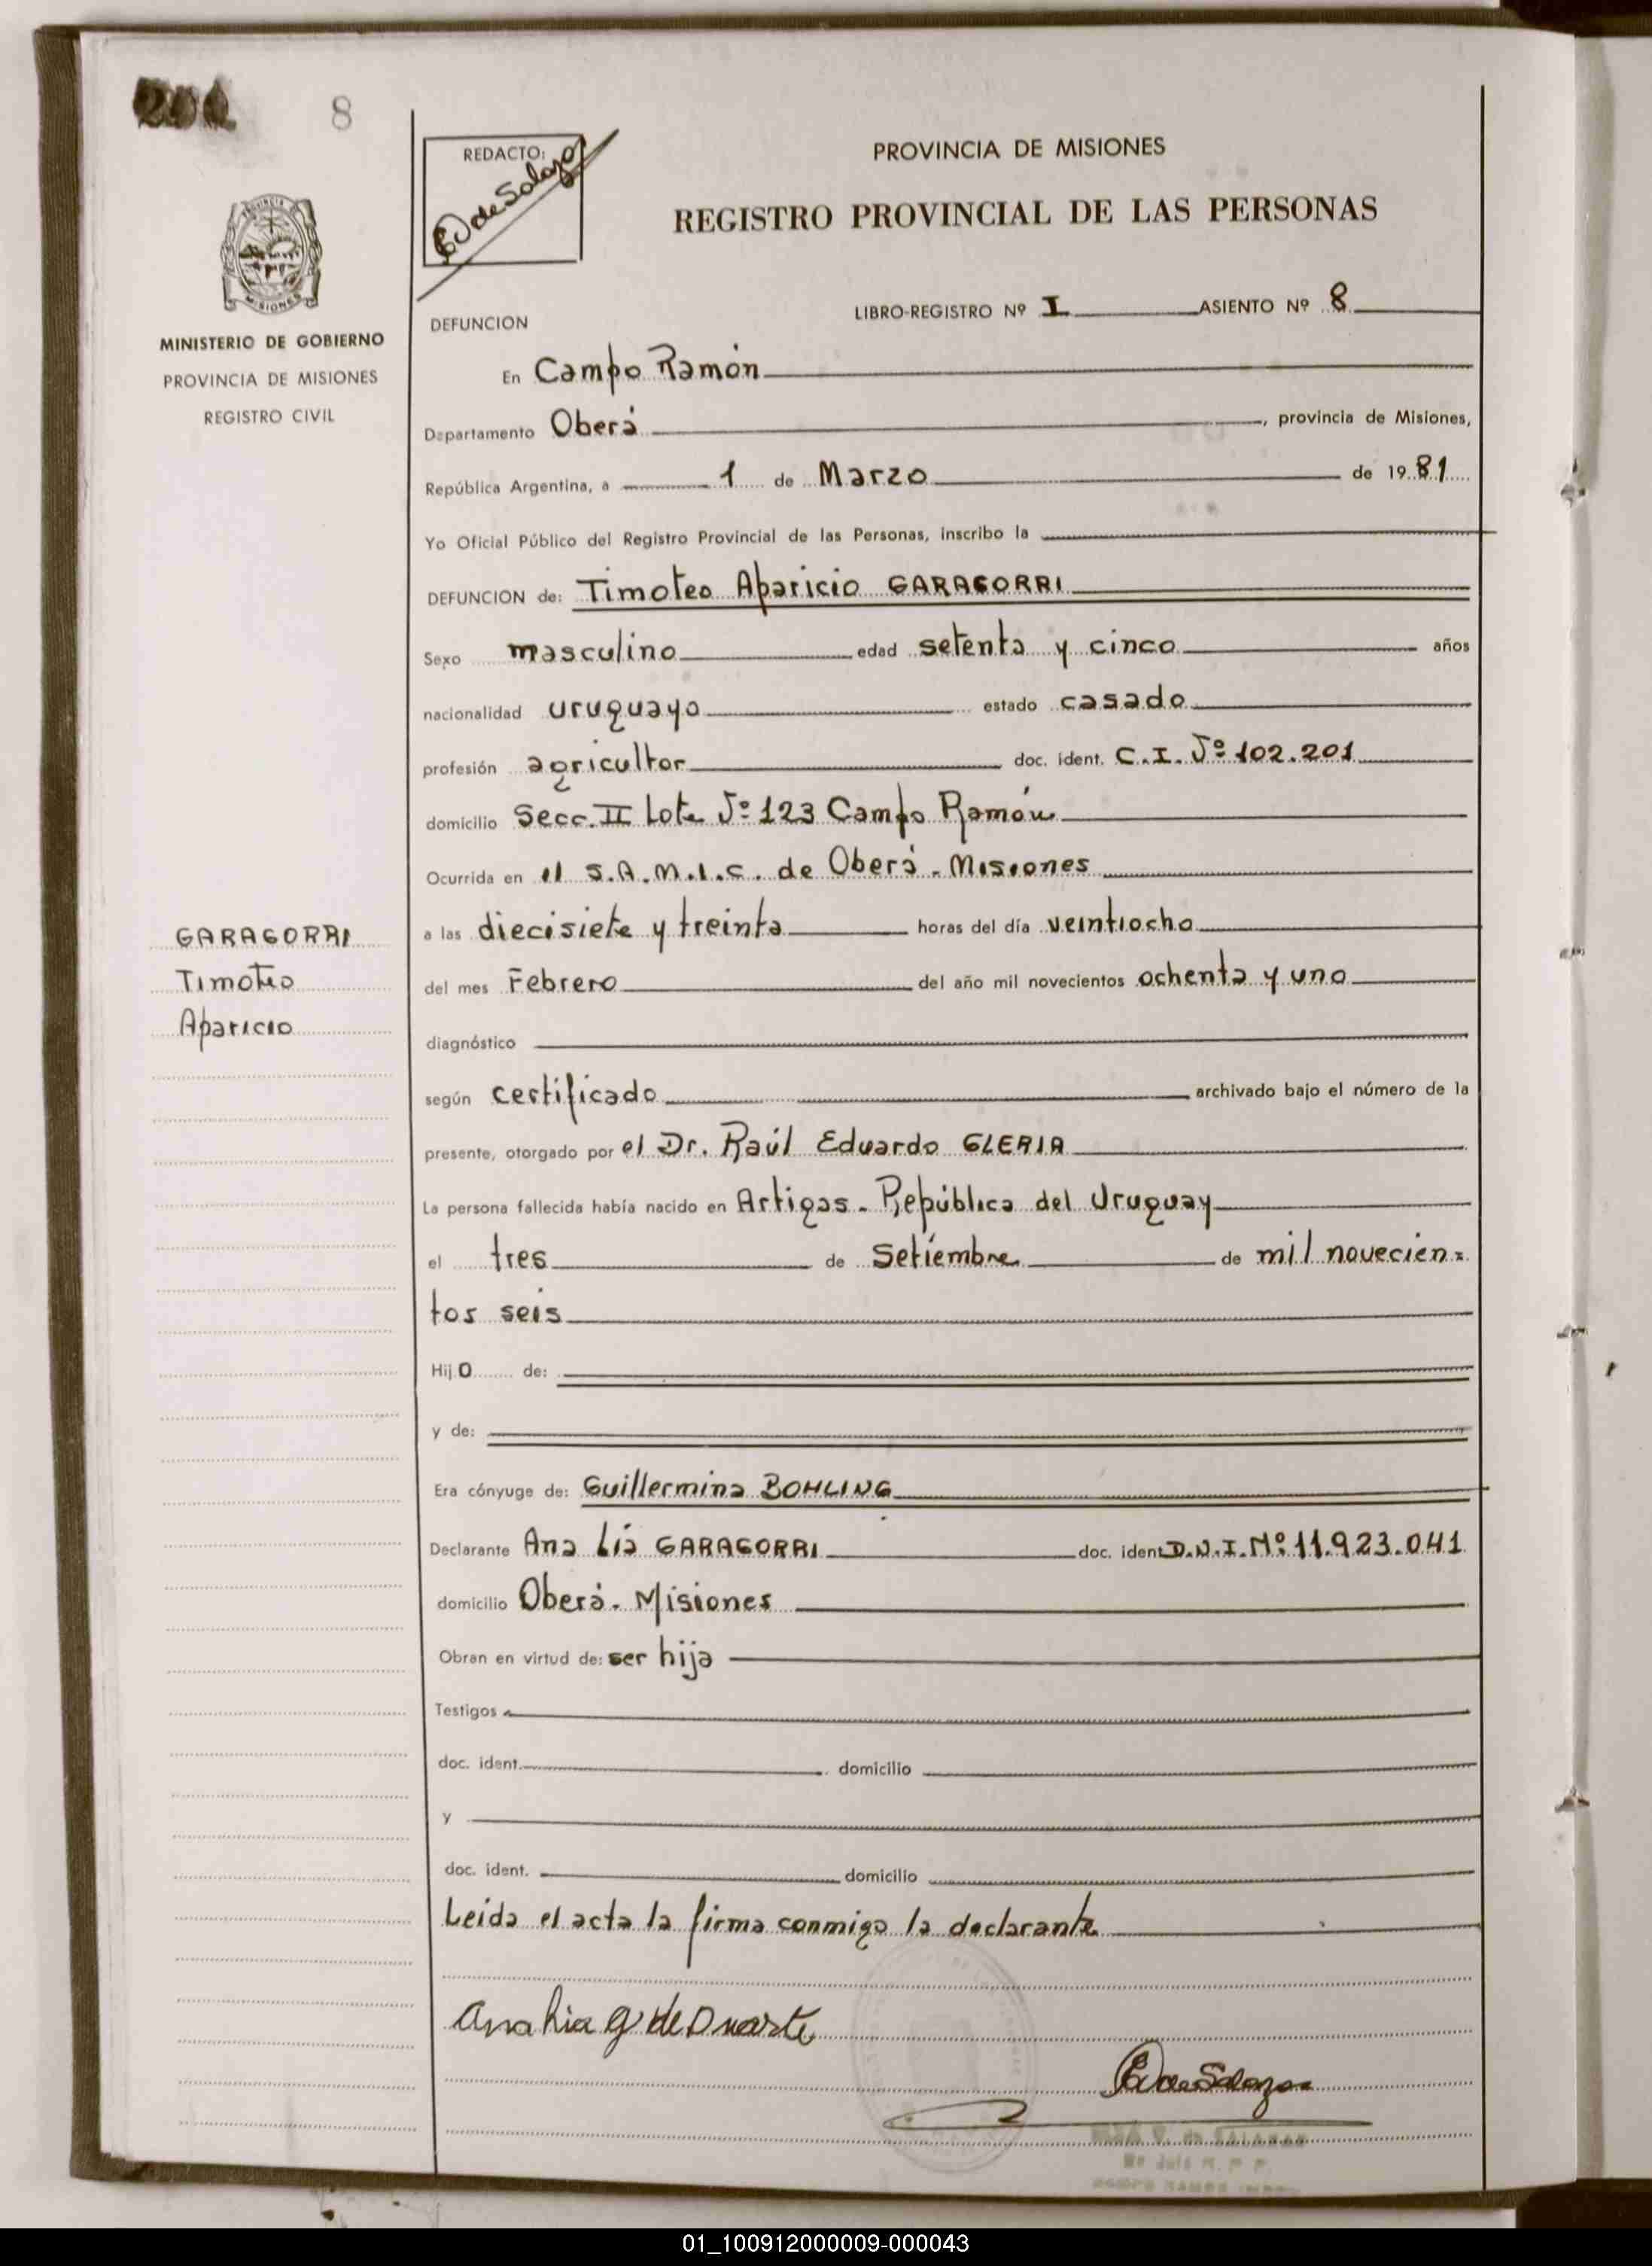 8
REDACTO:
de Salazar
PROVINCIA DE MISIONES
REGISTRO PROVINCIAL DE LAS PERSONAS
MISIONES
MINISTERIO DE GOBIERNO
PROVINCIA DE MISIONES
REGISTRO CIVIL
DEFUNCION
LIBRO-REGISTRO Nº I ASIENTO Nº 8
En Campo Ramón
Departamento Oberá, provincia de Misiones,
República Argentina, a 1 de Marzo de 1981
Yo Oficial Público del Registro Provincial de las Personas, inscribo la
DEFUNCION de: Timoteo Aparicio GARAGORRI
Sexo masculino edad setenta y cinco años
nacionalidad uruguayo estado casado
profesión agricultor doc. ident. C.I. Nº 102.201
domicilio Secc. II Lote Nº 123 Campo Ramón
Ocurrida en el S.A.M.I.C. de Oberá - Misiones
GARAGORRI
Timoteo
Aparicio
a las diecisiete y treinta horas del día veintiocho
del mes Febrero del año mil novecientos ochenta y uno
diagnóstico
según certificado archivado bajo el número de la
presente, otorgado por el Dr. Raúl Eduardo GLERIA
La persona fallecida había nacido en Artigas - República del Uruguay
el tres de Setiembre de mil novecien=
tos seis
Hijo de:
y de:
Era cónyuge de: Guillermina BOHLING
Declarante Ana Lía GARAGORRI doc. ident D.N.I. Nº 11.923.041
domicilio Oberá - Misiones
Obran en virtud de: ser hija
Testigos
doc. ident. domicilio
y
doc. ident. domicilio
Leida el acta la firma conmigo la declarante
Ana Lia G de Duarte
de Salazar
de SALAZAR
01_100912000009-000043